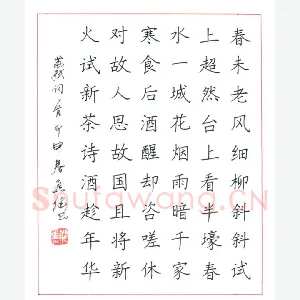 春未老风细柳斜斜试
上超然台上看半壕春
水一城花烟雨暗千家
寒食后酒醒却咨嗟休
对故人思故国且将新
火试新茶诗酒趁年华
苏轼词